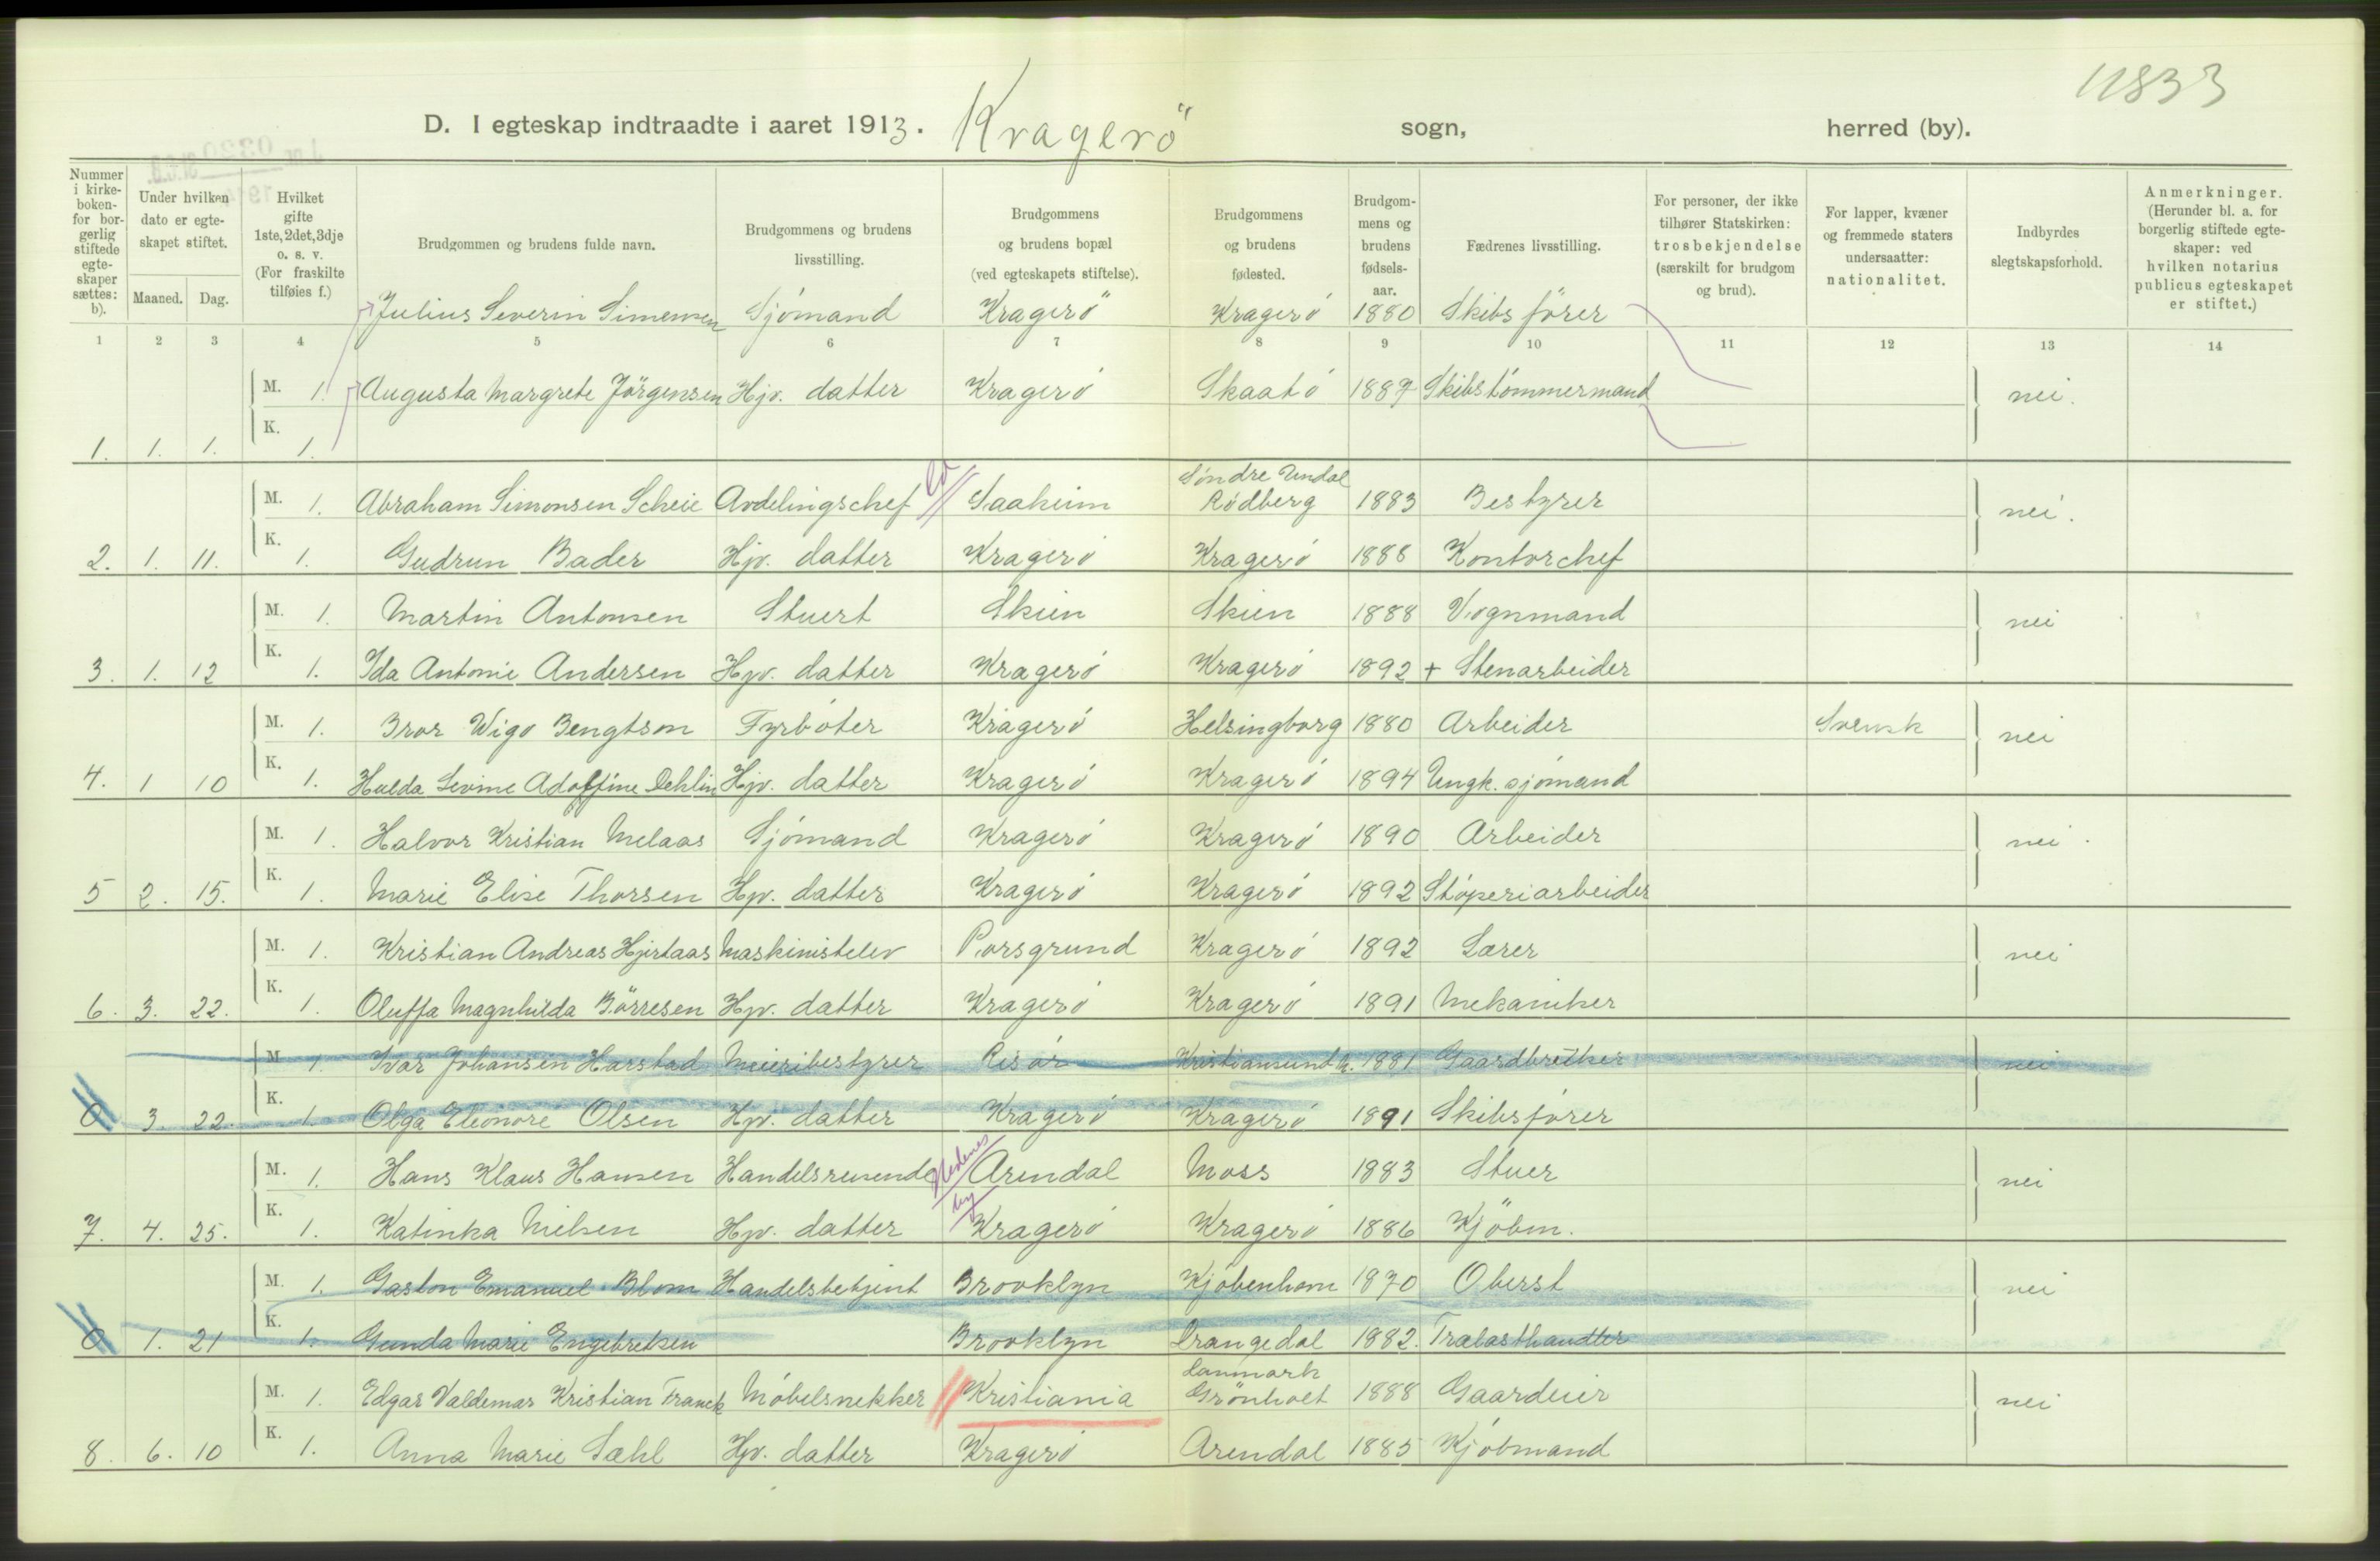 11833
D. I egteskap indtraadte i aaret 1913. Kragerö sogn, herred (by).
Nummer i kirke-boken- for bor-gerlig stiftede egte-skaper sættes: b).
Under hvilken dato er egte-skapet stiftet.
Maaned. Dag.
Hvilket gifte 1ste, 2det, 3dje o. s. v. (For fraskilte tilføies f.)
Brudgommen og brudens fulde navn.
Brudgommens og brudens livsstilling.
Brudgommens og brudens bopæl (ved egteskapets stiftelse).
Brudgommens og brudens fødested.
Brudgom-mens og brudens fødsels-aar.
Fædrenes livsstilling.
For personer, der ikke tilhører Statskirken: trosbekjendelse (særskilt for brudgom og brud).
For lapper, kvæner og fremmede staters undersaatter: nationalitet.
Indbyrdes slegtskapsforhold.
Anmerkninger. (Herunder bl. a. for borgerlig stiftede egte-skaper: ved hvilken notarius publicus egteskapet er stiftet.)
Julius Severin Simensen Sjömand Kragerö Kragerö 1880 Skibsfører
1 2 3 4 5 6 7 8 9 10 11 12 13 14
M. 1. Augusta Margrete Jörgensen Hjv. datter Kragerö Skaatö 1887 Skibstömmermand nei.
1. 1. 1. K. 1.
Söndre Undal
M. 1. Abraham Simonsen Scheie Avdelingschef Saaheim Rödberg 1883 Bestyrer nei.
2. 1. 11. K. 1. Gudrun Bader Hjv. datter Kragerö Kragerö 1888 Kontorchef
M. 1. Martin Antonsen Stuert Skien Skien 1888 Vognmand nei
3. 1. 12 K. 1. Ida Antonie Andersen Hjv. datter Kragerö Kragerö 1892 + Stenarbeider
M. 1. Bror Wigo Bengtson Fyrböter Kragerö Helsingborg 1880 Arbeider Svensk nei
4. 1 10 K. 1. Hulda Levine Adolfine Dehlin Hjv. datter Kragerö Kragerö 1894 Ungk. sjömand
M. 1. Halvor Kristian Melaas Sjömand Kragerö Kragerö 1890 Arbeider nei.
5 2. 15. K. 1. Marie Elise Thorsen Hjv. datter Kragerö Kragerö 1892 Stöperiarbeider
M. 1. Kristian Andreas Hjertaas Maskinistelev Porsgrund Kragerö 1892 Lærer nei
6. 3. 22. K. 1. Oluffa Magnhilda Börresen Hjv. datter Kragerö Kragerö 1891 Mekaniker
M. 1. Ivar Johansen Harstad Meieribestyrer Risör Kristiansund N. 1881 Gaardbruker nei
0 3. 22. K. 1. Olga Eleonore Olsen Hjv. datter Kragerö Kragerö 1891 Skibsfører
Nedenes
M. 1. Hans Klaus Hansen Handelsreisende Arendal Moss 1883 Stuer nei
by
7. 4. 25. K. 1. Katinka Nielsen Hjv. datter Kragerö Kragerö 1886 Kjöbm.
M. 1. Gaston Emanuel Blom Handelsbetjent Brooklyn Kjöbenhavn 1870 Oberst nei
0 1. 21 K. 1. Gunda Marie Engebretsen Brooklyn Drangedal 1882. Trælasthandler
Danmark
M. 1. Edgar Valdemar Kristian Franck Möbelsnekker Kristiania Grönholt 1888 Gaardeier nei
8. 6. 10 K. 1. Anna Marie Sæhl Hjv. datter Kragerö Arendal 1885 Kjöbmand